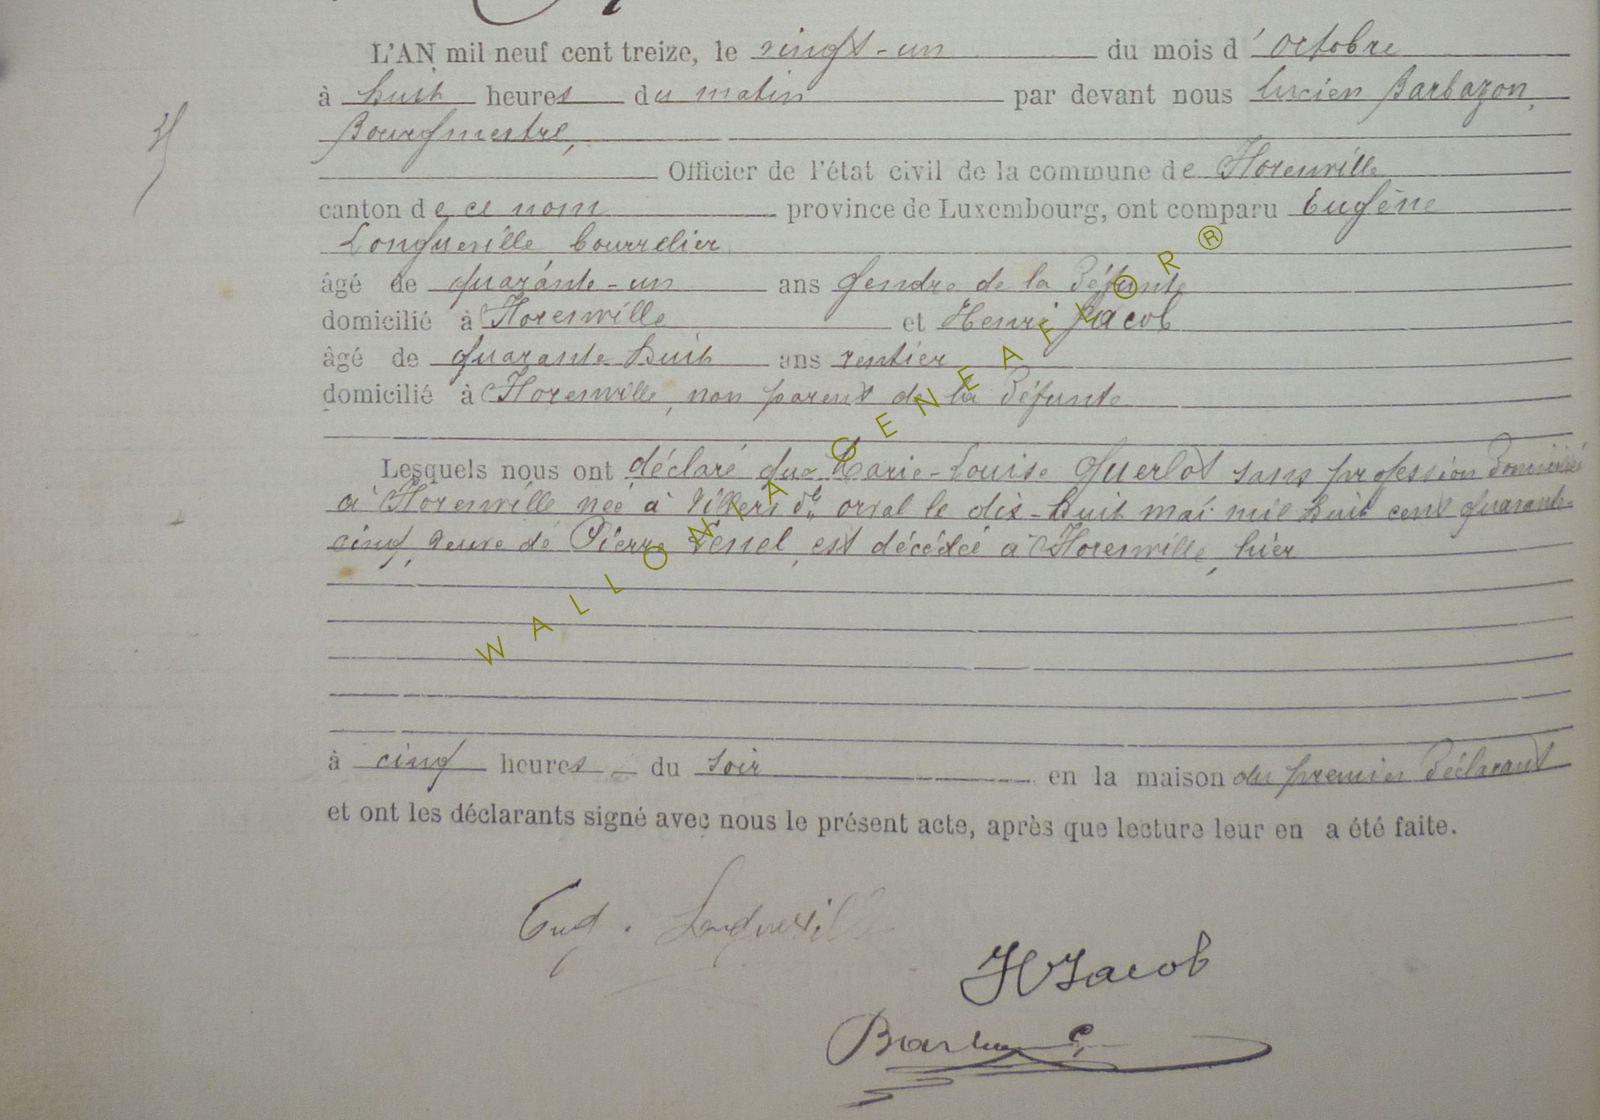 L'AN mil neuf cent treize, le vingt-un du mois d'octobre
à huit heures du matin par devant nous Lucien Barbazon,
Bourgmestre,
Officier de l'état civil de la commune de Florenville
canton de ce nom province de Luxembourg, ont comparu Eugène
Longueville bourrelier
âgé de quarante-un ans gendre de la défunte
domicilié à Florenville et Henri Jacob
âgé de quarante huit ans rentier
domicilié à Florenville, non parent de la défunte
Lesquels nous ont déclaré que Marie-Louise Guerlot sans profession domiciliée
à Florenville née à Villers dt orval le dix-huit mai mil huit cent quarante-
cinq, veuve de Pierre, est décédée à Florenville, hier
à cinq heures du soir en la maison du premier déclarant
et ont les déclarants signé avec nous le présent acte, après que lecture leur en a été faite.
Eug. Longueville
H Jacob
WALLONIA GENEAFLOR®